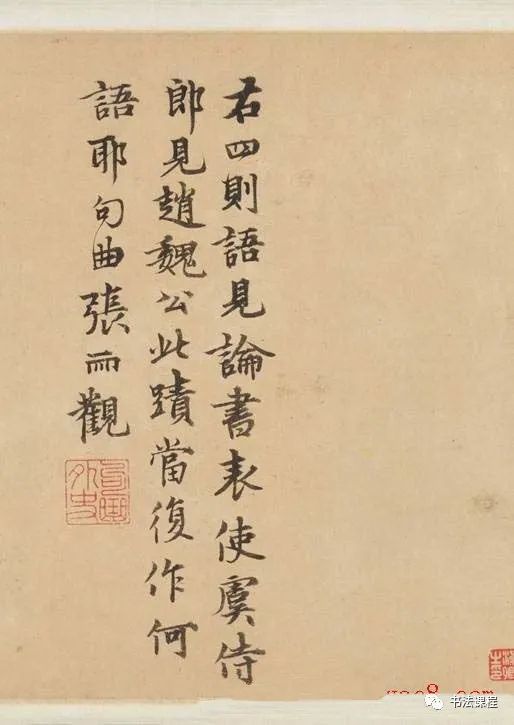 右四則語見論書表使虞侍
郎見趙魏公此蹟當復作何
語耶句曲張雨觀
句曲外史
书法课程